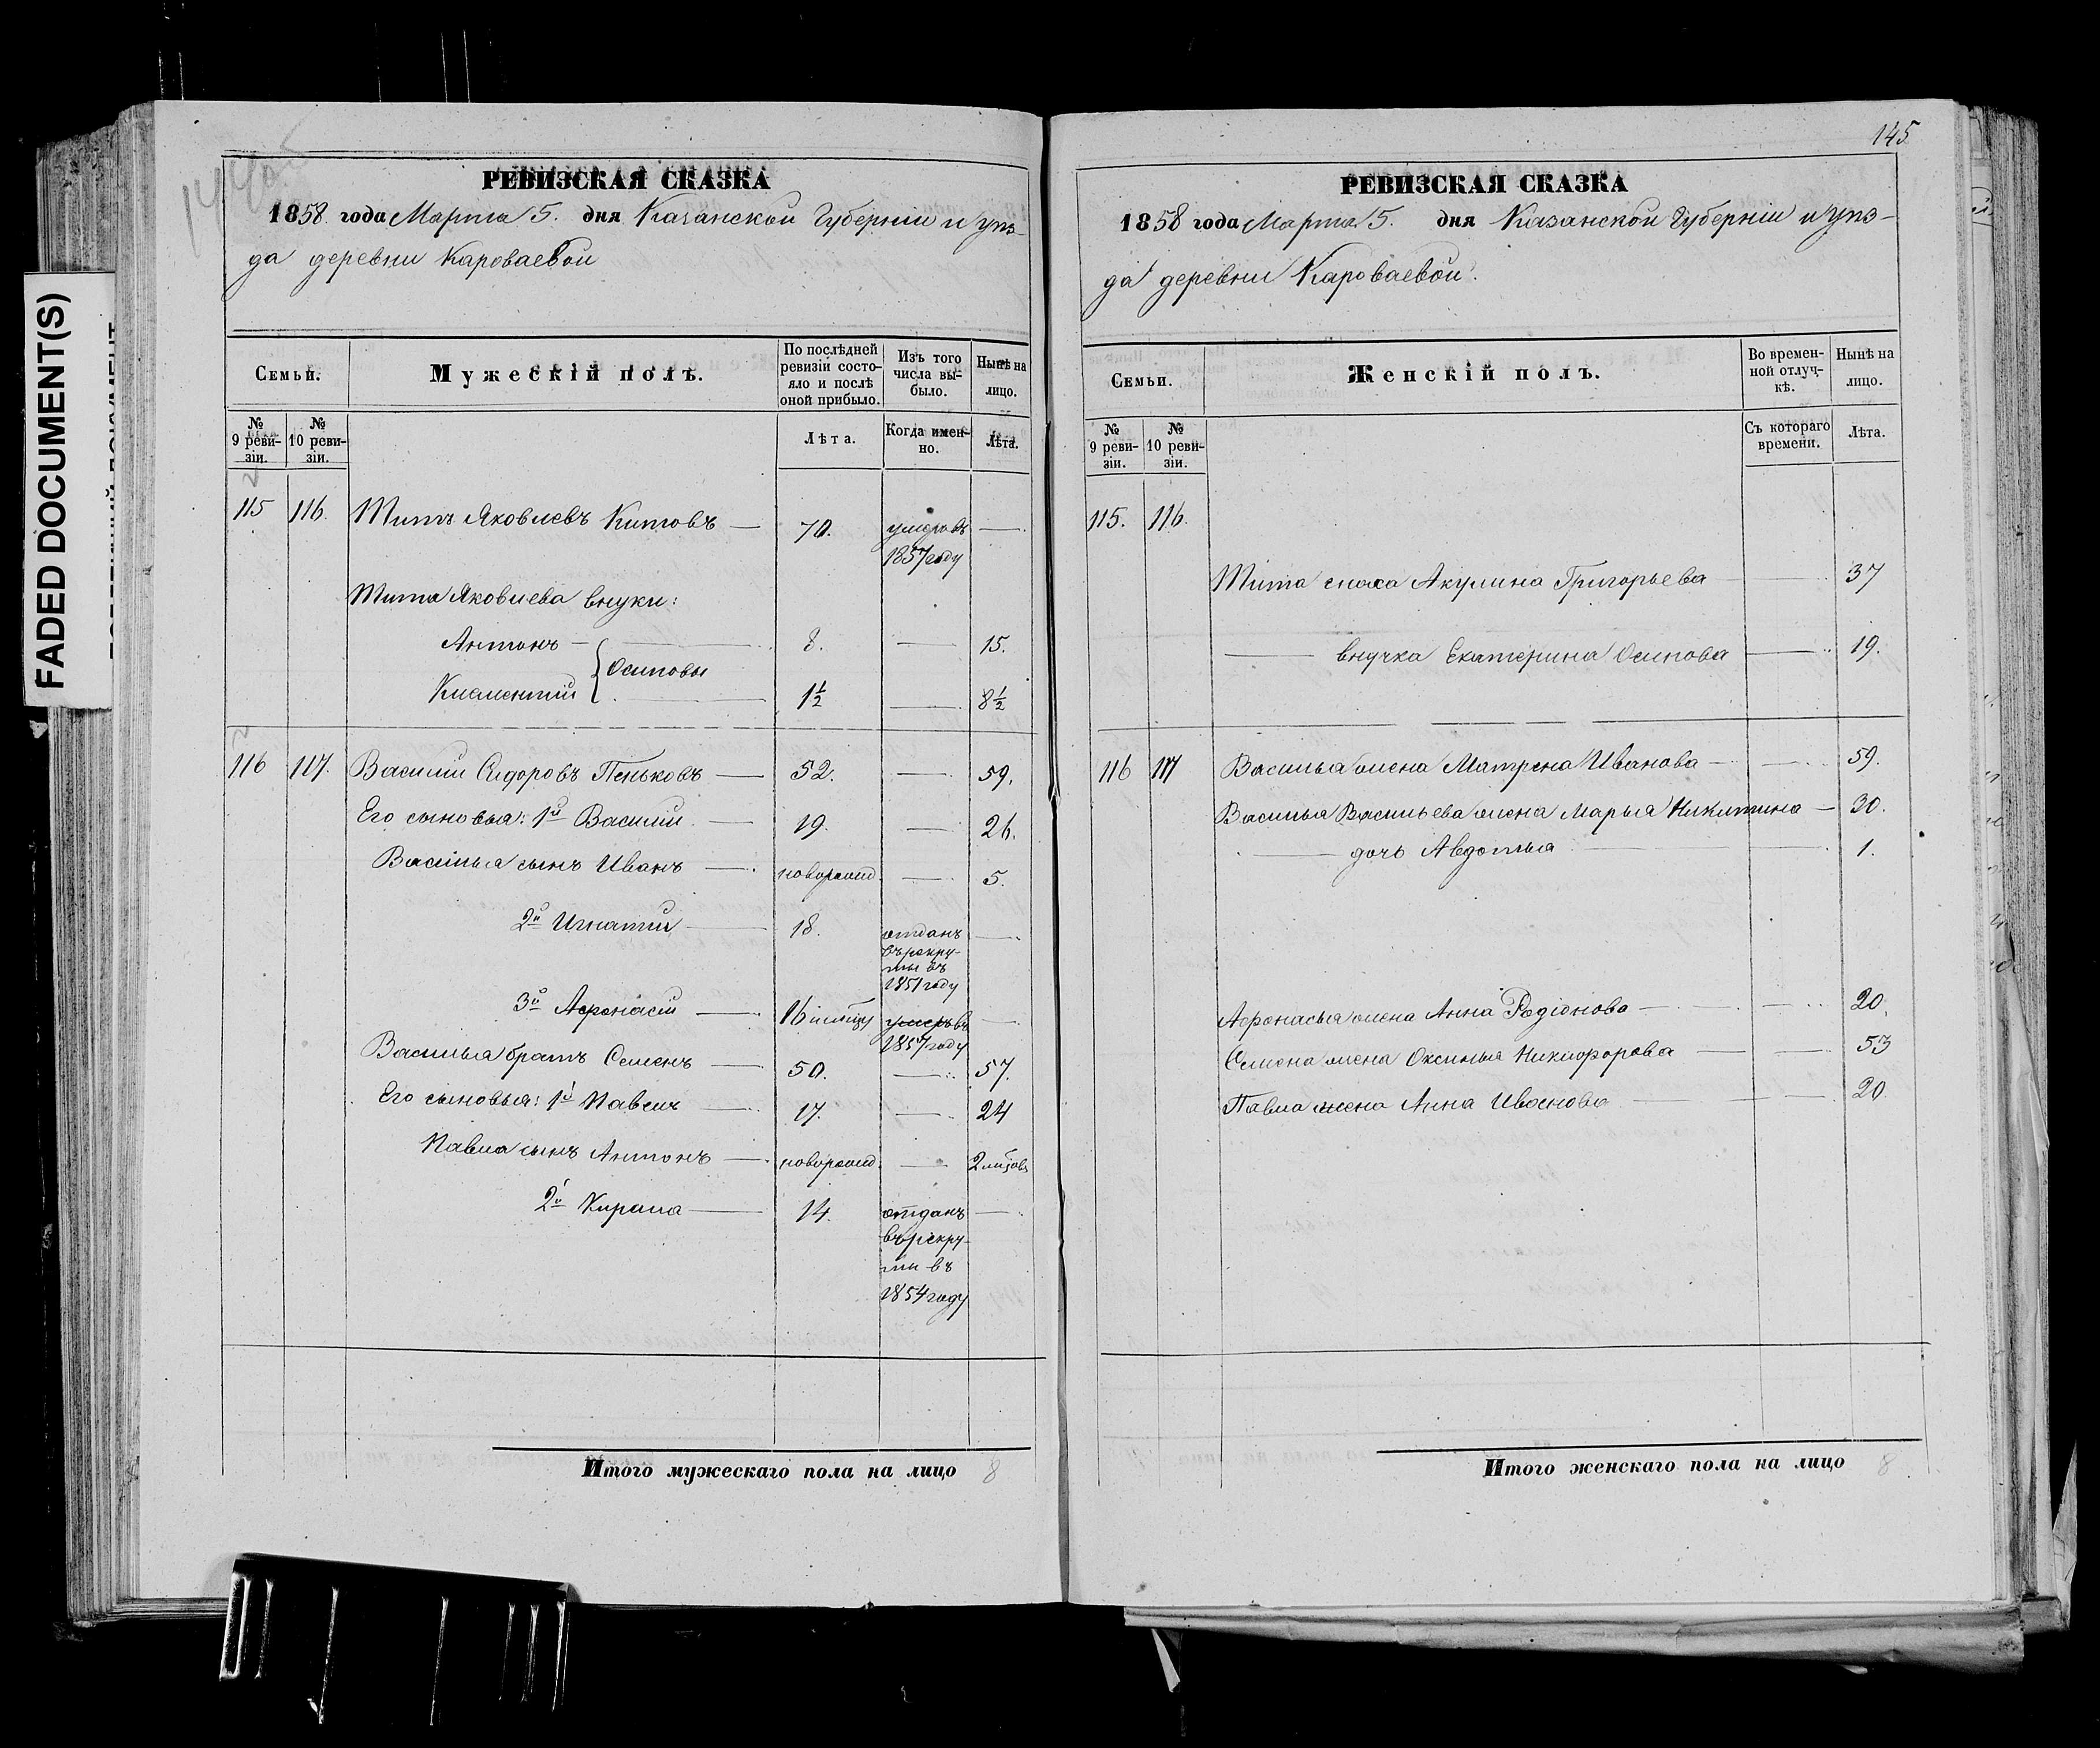 FADED DOCUMENT(S)
РЕВИЗСКАЯ СКАЗКА
1858 года Марта 5. дня Казанской Губерніи и уѣз-
да деревни Кароваевой
Семьи.
Мужескій полъ.
По послѣдней ревизіи состояло и послѣ оной прибыло.
Изъ того числа выбыло.
Нынѣ на лицо.
№ 9 ревизіи.
№ 10 ревизіи.
Лѣта.
Когда именно.
Лѣта.
115 116. Титъ Яковлевъ Китовъ — 70. умеръ въ —
1857 году
Тита Яковлева внуки:
Антонъ — 8. — 15.
Осиповы
Климентій 1½ — 8½
116 117. Василий Сидоровъ Пеньковъ — 52. — 59.
Его сыновья: 1й Василий — 19. — 26.
Василья сынъ Иванъ — новорожд. — 5.
2й Игнатий — 18. отданъ —
въ рекру-
ты въ
1851 году
3й Афонасій — 16 умеръ въ —
1857 году
Василья братъ Семенъ — 50. — 57.
Его сыновья: 1й Павелъ — 17. — 24
Павла сынъ Антонъ — новорожд. — 2
2й Кирила — 14. отданъ —
въ рекру-
ты въ
1854 году
Итого мужескаго пола на лицо 8
145
РЕВИЗСКАЯ СКАЗКА
1858 года Марта 5. дня Казанской Губерніи и уѣз-
да деревни Кароваевой.
Семьи.
Женскій полъ.
Во временной отлучкѣ.
Нынѣ на лицо.
№ 9 ревизіи.
№ 10 ревизіи.
Съ котораго времени.
Лѣта.
115. 116.
Тита сноха Акулина Григорьева — 37
— внучка Екатерина Осипова — 19.
116 117 Василья жена Матрена Иванова — 59.
Василья Васильева жена Марья Никитина — 30.
— дочь Авдотья — 1.
Афонасья жена Анна Родіонова — 20.
Семена жена Оксинья Никифорова — 53
Павла жена Анна Иванова — 20
Итого женскаго пола на лицо 8